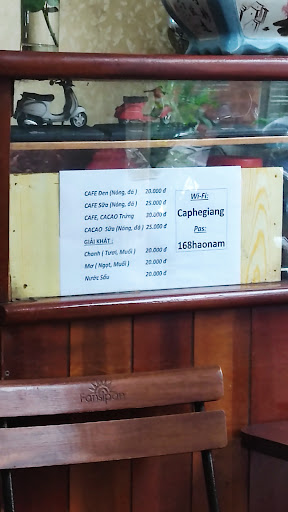 CAFE Đen (Nóng, đá) 20.000 đ
CAFE Sữa (Nóng, đá) 25.000 đ
CAFE, CACAO Trứng 20.000 đ
CACAO Sữa (Nóng, đá) 25.000 đ
GIẢI KHÁT:
Chanh (Tươi, Muối) 20.000 đ
Mơ (Ngọt, Muối) 20.000 đ
Nước Sấu 20.000 đ
Wi-Fi:
Caphegiang
Pas:
168haonam
Fansipan